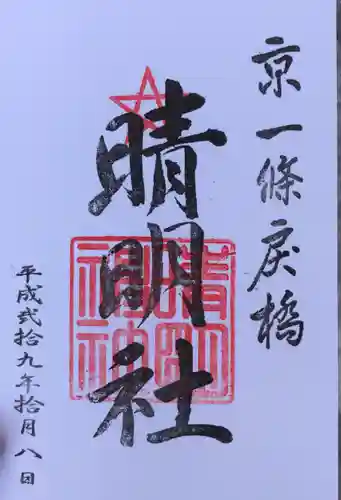 京一條戻橋
晴明社
平成弐拾九年拾月八日
晴明
神社